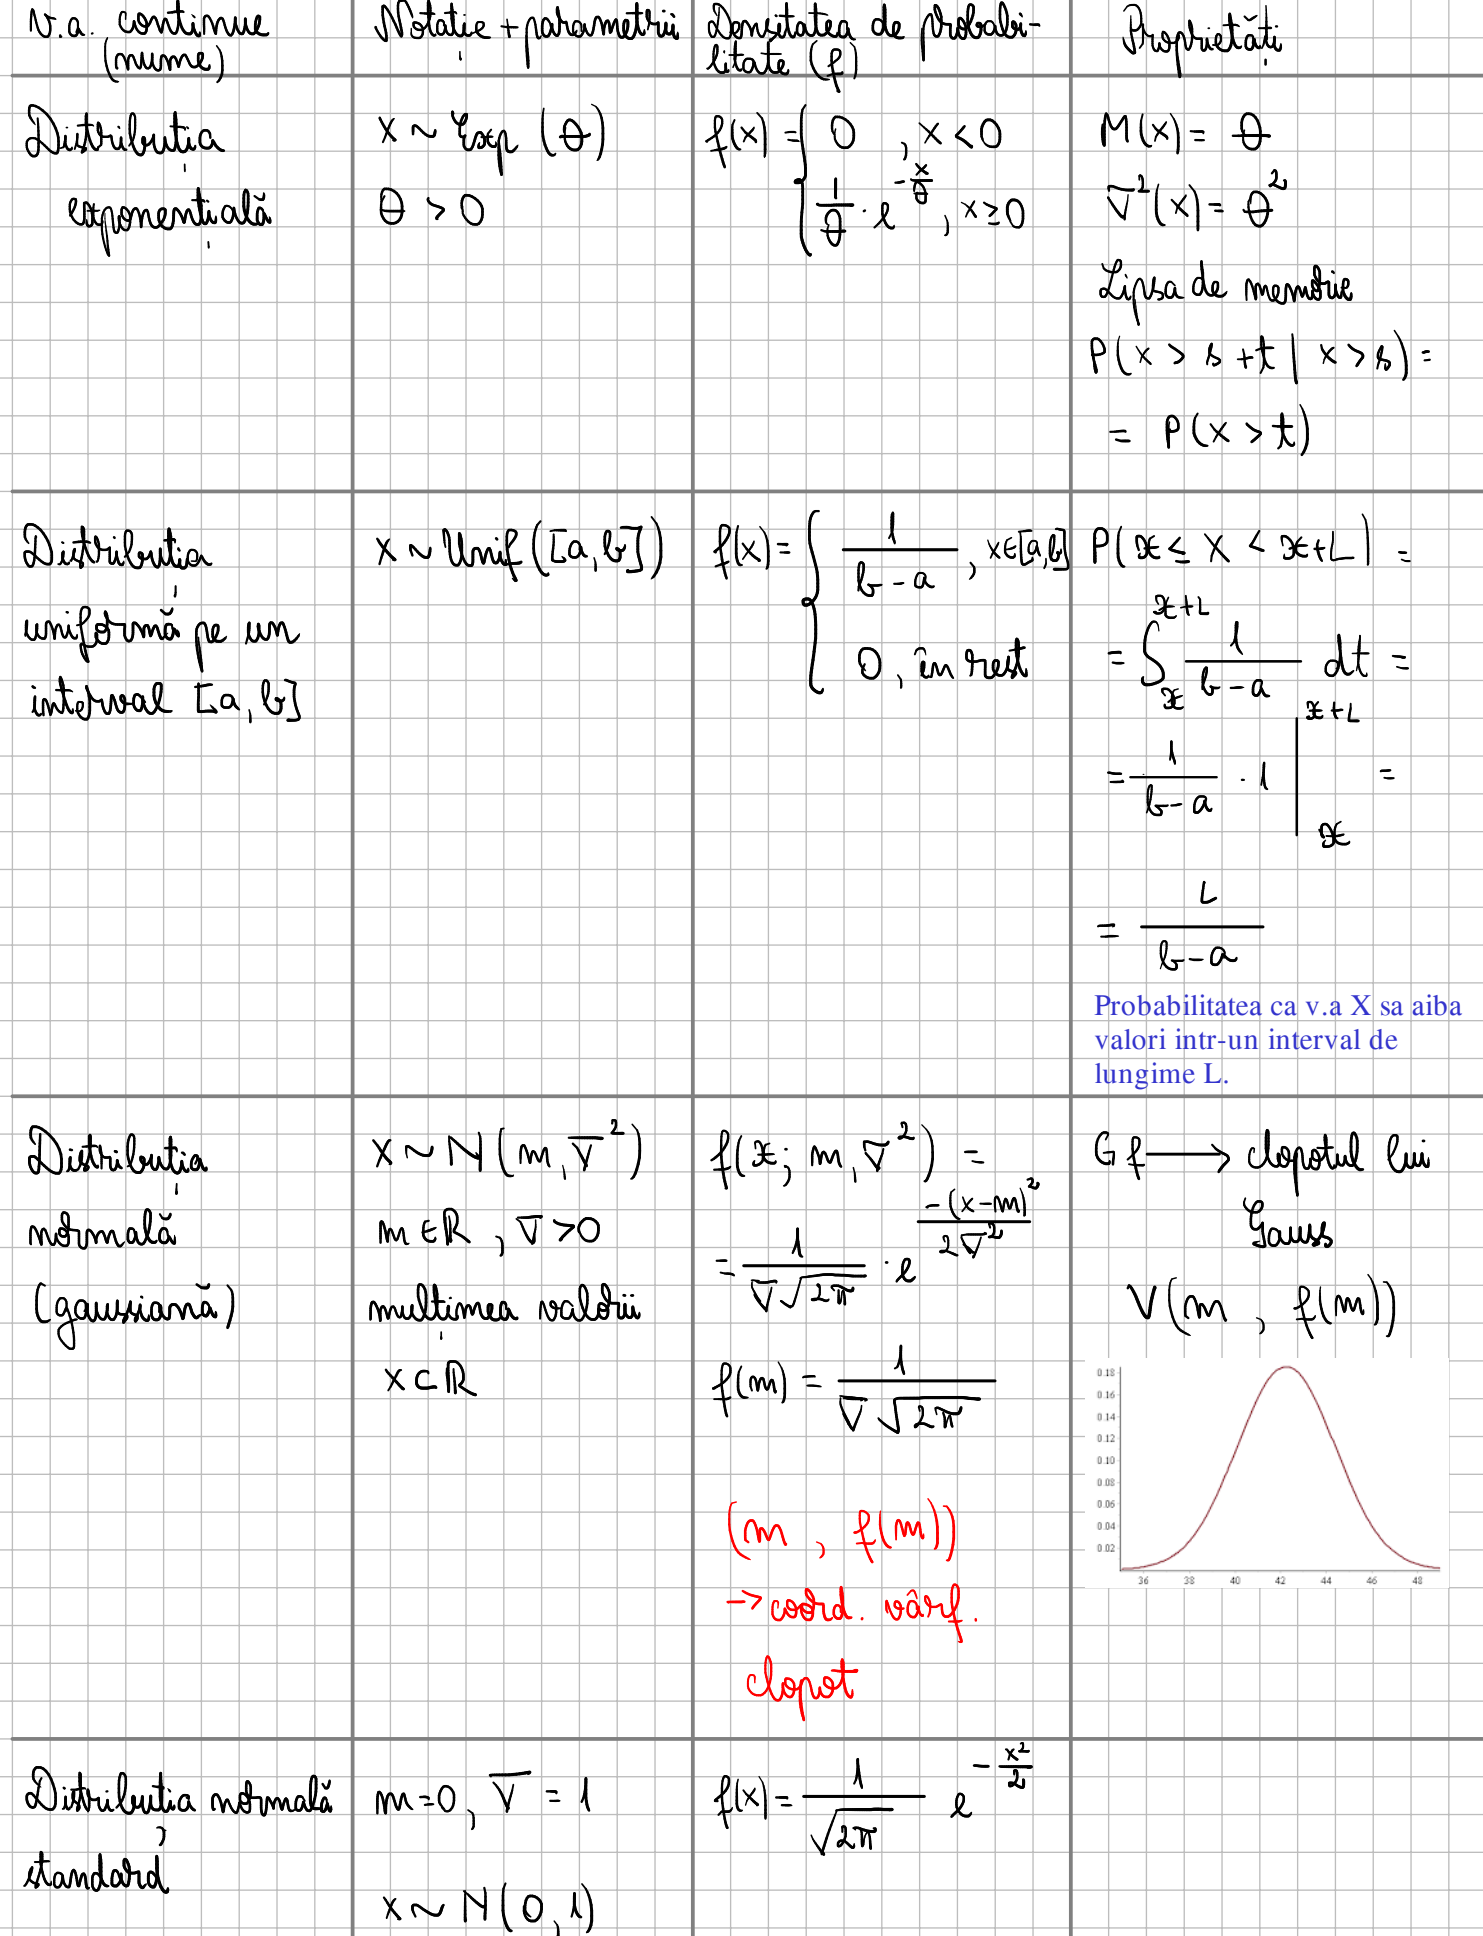 v.a. continue (nume)
Notație + parametrii
Densitatea de probabi-
litate (f)
Proprietăți
Distribuția
exponențială
X ~ Exp (θ)
θ > 0
f(x) = { 0 , x < 0
1/θ · e^(-x/θ) , x ≥ 0
M(x) = θ
∇²(x) = θ²
Lipsa de memorie
P(x > s + t | x > s) =
= P(x > t)
Distribuția
uniformă pe un
interval [a, b]
X ~ Unif ([a, b])
f(x) = { 1/(b-a) , x∈[a,b]
0 , în rest
P(x ≤ X < x+L) =
= ∫_x^(x+L) 1/(b-a) dt =
= 1/(b-a) · 1 |_x^(x+L) =
= L/(b-a)
Probabilitatea ca v.a X sa aiba
valori intr-un interval de
lungime L.
Distribuția
normală
(gaussiană)
X ~ N(m, ∇²)
m ∈ ℝ , ∇ > 0
mulțimea valorii
X ⊂ ℝ
f(x; m, ∇²) =
= 1/(∇√2π) · e^(-(x-m)²/2∇²)
f(m) = 1/(∇√2π)
(m , f(m))
→ coord. vârf.
clopot
Gf → clopotul lui
Gauss
V(m , f(m))
0.18
0.16
0.14
0.12
0.10
0.08
0.06
0.04
0.02
36 38 40 42 44 46 48
Distribuția normală
standard
m=0, ∇ = 1
X ~ N(0, 1)
f(x) = 1/√2π e^(-x²/2)